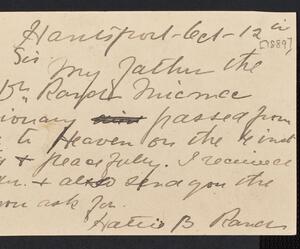 Hantsport Oct-12th
[1889]
Sir
My father the
Dr. Rand Micmac
sionary passed from
to Heaven on the
& peacefully. I received
& also send you the
you ask for.
Hattie B Rand